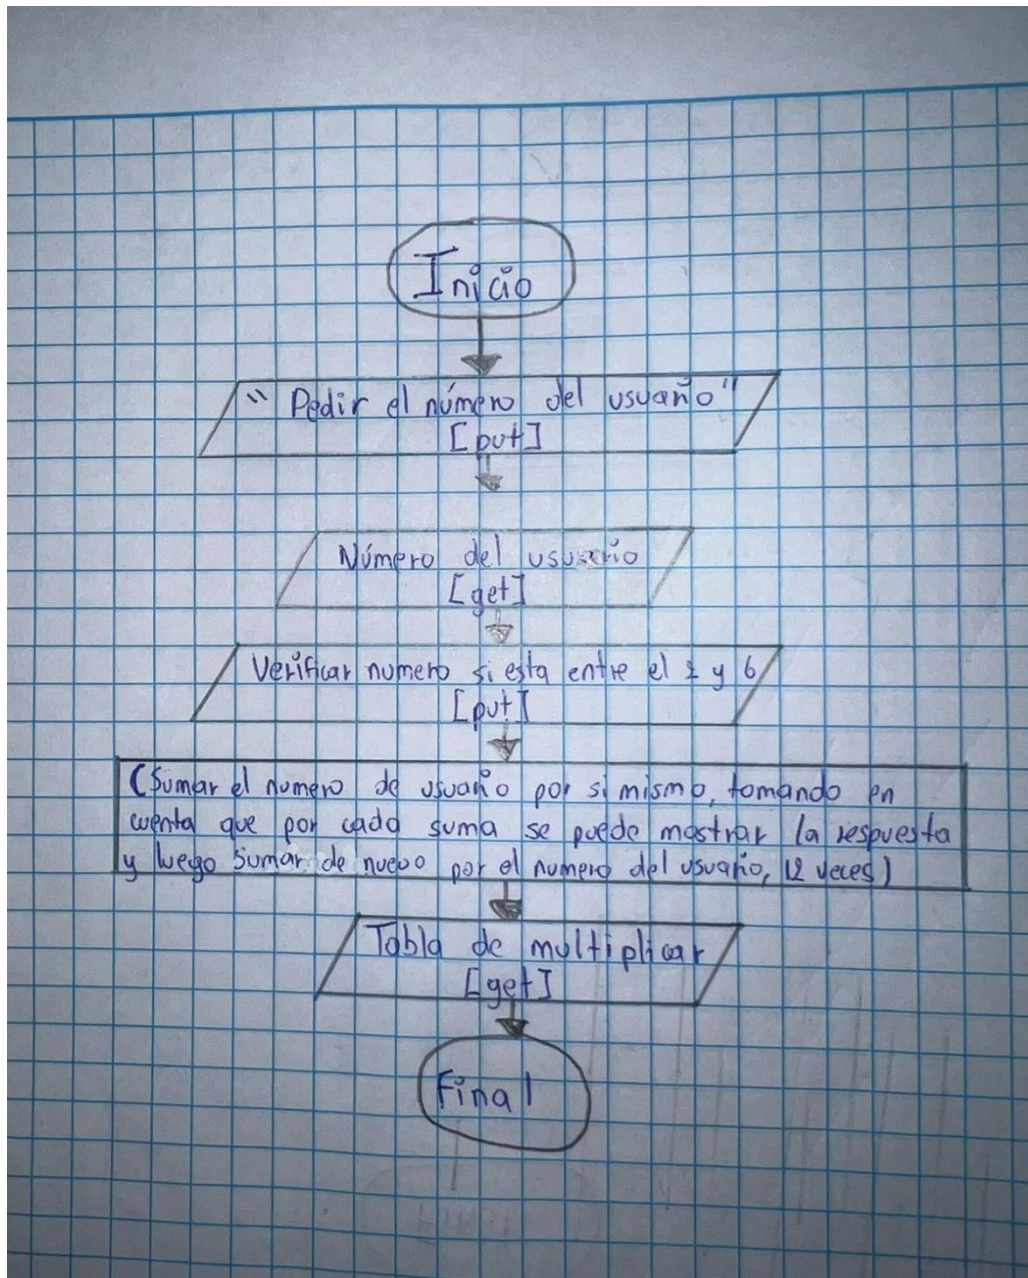 Inicio
"Pedir el número del usuario"
[put]
Número del usuario
[get]
Verificar numero si esta entre el 1 y 6
[put]
(Sumar el numero de usuario por si mismo, tomando en
cuenta que por cada suma se puede mostrar la respuesta
y luego sumar de nuevo por el numero del usuario, 12 veces)
Tabla de multiplicar
[get]
Final